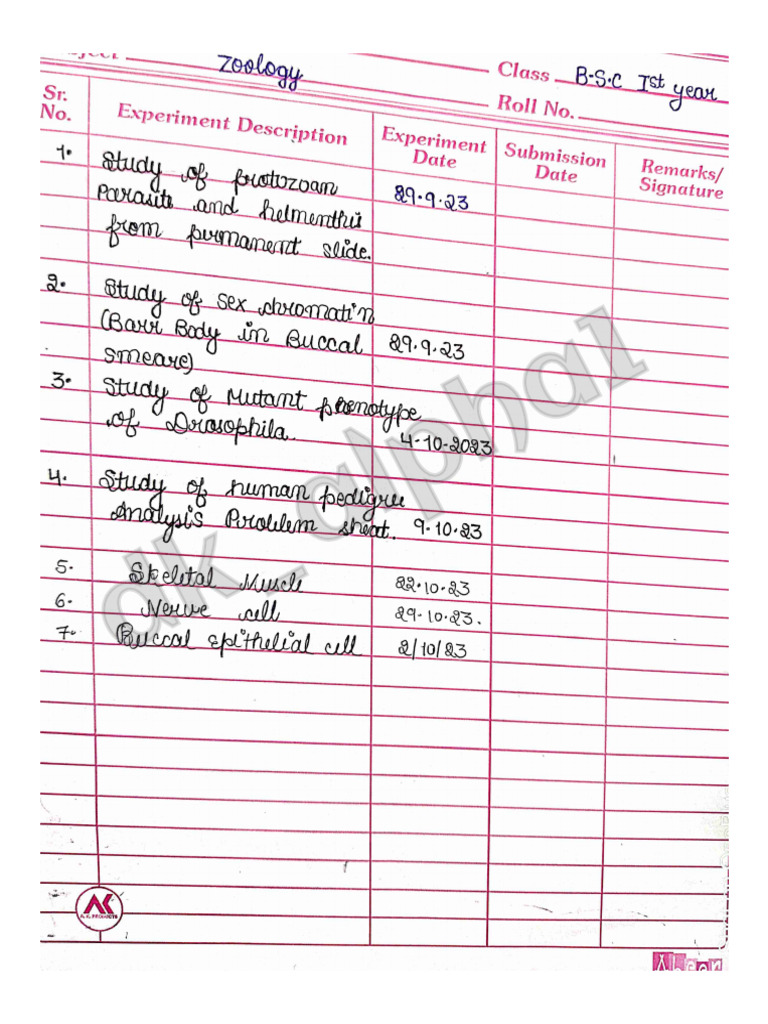 Zoology
Class B.S.C Ist year
Roll No.
Sr. No. Experiment Description Experiment Date Submission Date Remarks/ Signature
1. Study of protozoan
Parasite and helmenthis 29.9.23
from permanent slide.
2. Study of Sex chromatin
(Barr Body in Buccal 29.9.23
Smeare)
3. Study of Mutant phenotype
of Drosophila. 4-10-2023
4. Study of human pedigree
Analysis Problem sheat. 9.10.23
5. Skeletal Muscle 22.10.23
6. Nerve cell 29-10.23.
7. Buccal epithelial cell 2/10/23
dk_alpha1
AK
A. K. PRODUCTS